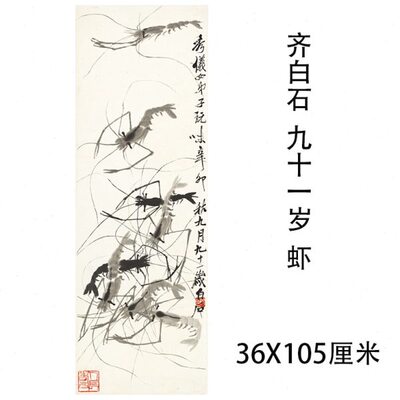 秀儀女弟子玩味辛卯秋九月九十一歲白石
齐白石 九十一岁 虾
36X105厘米